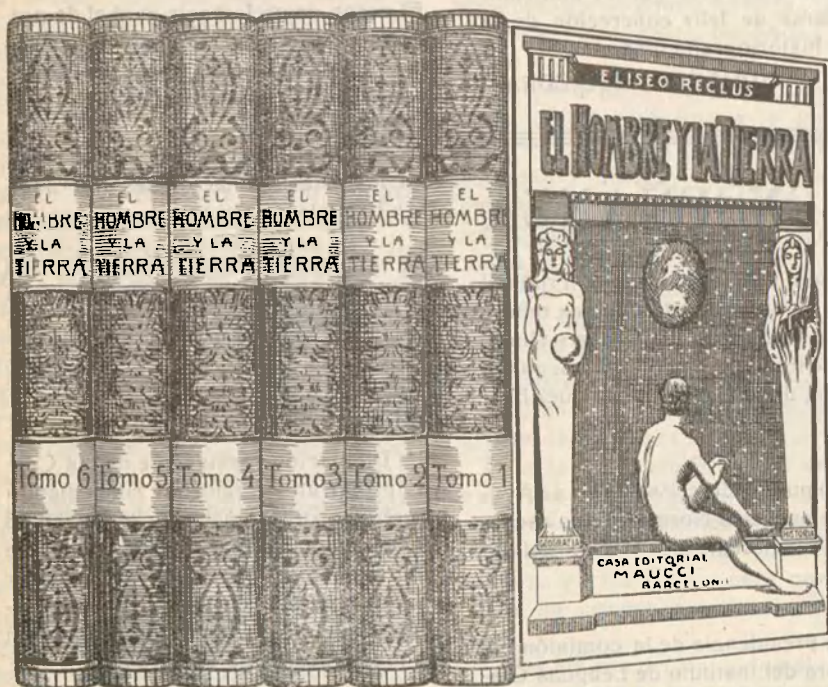 EL
HOMBRE
Y LA
TIERRA
Tomo 6
EL
HOMBRE
Y LA
TIERRA
Tomo 5
EL
HOMBRE
Y LA
TIERRA
Tomo 4
EL
HOMBRE
Y LA
TIERRA
Tomo 3
EL
HOMBRE
Y LA
TIERRA
Tomo 2
EL
HOMBRE
Y LA
TIERRA
Tomo 1
ELISEO RECLUS
EL HOMBRE Y LA TIERRA
GEOGRAFIA
HISTORIA
CASA EDITORIAL
MAUCCI
BARCELONA